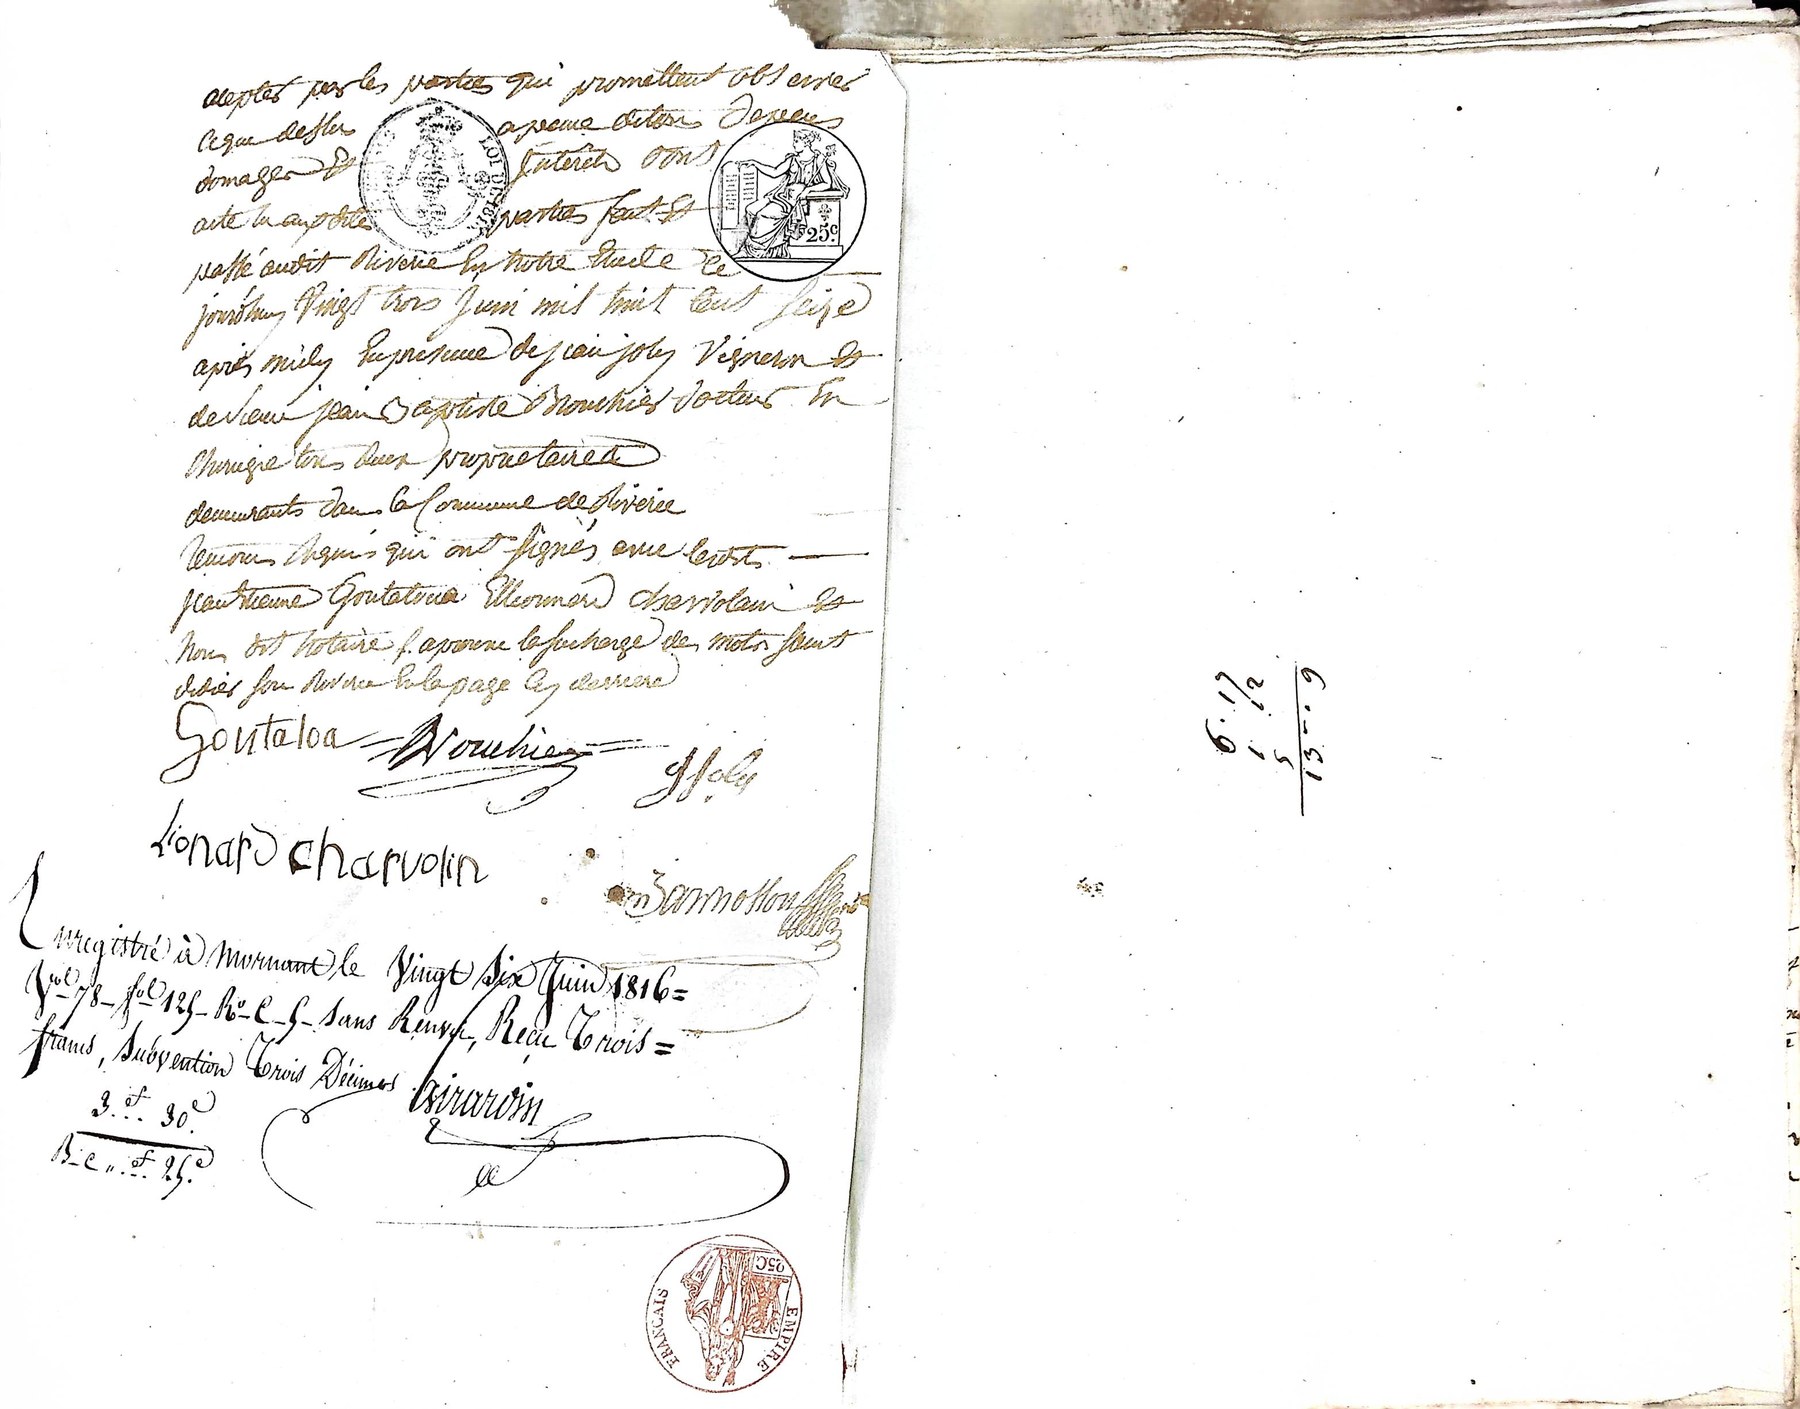 aceptés par les parties qui promettent observer
ce que dessus a peine de tous depens
domages Et Intérêts dont
acte lu auxdites parties fait Et
passé audit Riverie En notre Etude Ce
jourd'huy Vingt trois Juin mil huit Cent Seize
après midy En presence de jean joly Vigneron Et
de sieur jean Baptiste Brouchier docteur En
Chirurgie tous deux propriétaires
demeurants dans la Commune de Riverie
temoins requis qui ont signés avec lesdits
jean Etienne Goutaloua Charvolain Et
Nous dit Notaire aprouvé la surcharge des mots saint
didier sou Riverie En la page derriere
Goutaloa Brouchier
JJoly
Lionard charvolin
Enregistré à Mornant le Vingt Six Juin 1816 =
Vol 78 - fol 125 - Ro - C - 5 - Sans Renvoi, Reçu Trois =
francs, Subvention Trois Décimes. Girardin
3.f.. 30c.
B-C ,, .f. 25.c
LOI DE
25c
EMPIRE
FRANCAIS
25C
6 . 17
1 . 12
5
13 - . 9